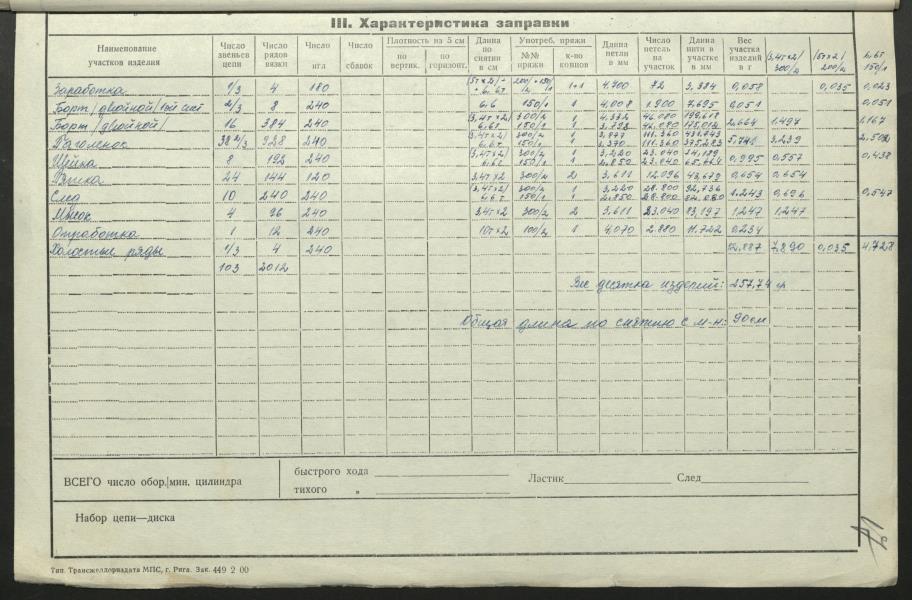 III. Характеристика заправки
Наименование участков изделия | Число звеньев цепи | Число рядов вязки | Число игл | Число сбавок | Плотность на 5 см по вертик. | по горизонт. | Длина по снятии в см | Употреб. пряжи №№ пряжи | к-во концов | Длина петли в мм | Число петель на участок | Длина нити в участке в мм | Вес участка изделия в г | 3,4т×2/ 300/2 | /5т×2/ 200/2 | 6.6т 150/1
Заработка 1/3 4 180 200/2 + 150/1 1+1 4,700 72 0,058 0,035 0,023
Борт /двойной/ 2/3 8 240 6.6 150/1 1 4,008 1.900 7,695 0,051 0,051
Борт /двойной/ 16 384 240 /3,4т×2/ 300/2 1 4,332 46.080 2,664 1,497 1,167
6.6т 150/1 1 46.080
Паголенок 38 2/3 928 240 /3,4т×2/ 300/2 1 111.360 5,741 3,239 2,502
6.6т 150/1 1 111.360
Щиколка 8 192 240 /3,4т×2/ 300/2 1 3,220 23.040 0,995 0,557 0,438
6.6т 150/1 1 2,850 23.040
Пятка 24 144 120 3,4т×2 300/2 2 3,611 12.096 43,679 0,654 0,654
След 10 240 240 /3,4т×2/ 300/2 1 3,220 28.800 92,736 1,243 0,696 0,547
6.6т 150/1 1 2,850 28.800
Мысок 4 96 240 3,4т×2 300/2 2 3,611 23.040 83,197 1,247 1,247
Отработка 1 12 240 10т×2 100/2 1 4,070 2.880 11.722 0,234
Холостые ряды 1/3 4 240 12,887 7,890 0,035 4,728
103 2012
Вес десятка изделий: 257,74 гр
Общая длина по снятию с м-н: 90 см
ВСЕГО число обор./мин. цилиндра
быстрого хода
тихого „
Ластик
След
Набор цепи—диска
Тип. Трансжелдориздата МПС, г. Рига. Зак. 449 2 00